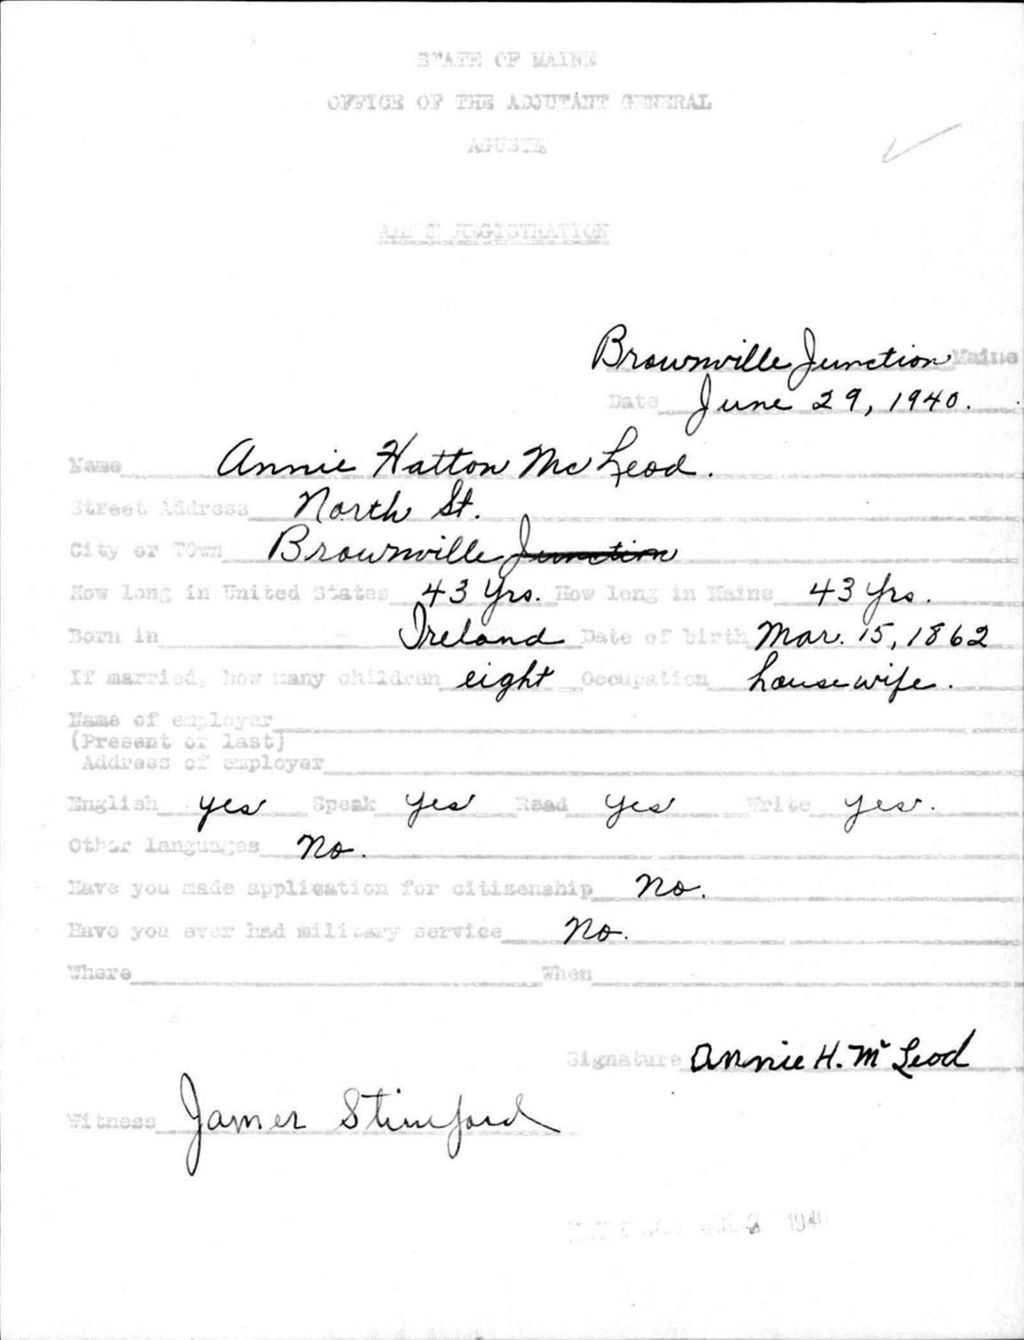 STATE OF MAINE
OFFICE OF THE ADJUTANT GENERAL
AGUSTA
ALIEN REGISTRATION
Brownville Junction Maine
Date June 29, 1940.
Name Annie Hatton McLeod.
Street Address North St.
City or Town Brownville Junction
How long in United States 43 Yrs. How long in Maine 43 Yrs.
Born in Ireland Date of birth Mar. 15, 1862
If married, how many children eight Occupation housewife.
Name of employer
(Present or last)
Address of employer
English yes Speak yes Read yes Write yes.
Other languages No.
Have you made application for citizenship No.
Have you ever had military service No.
Where When
Signature Annie H. Mc Leod
Witness James Stinford
2 1940